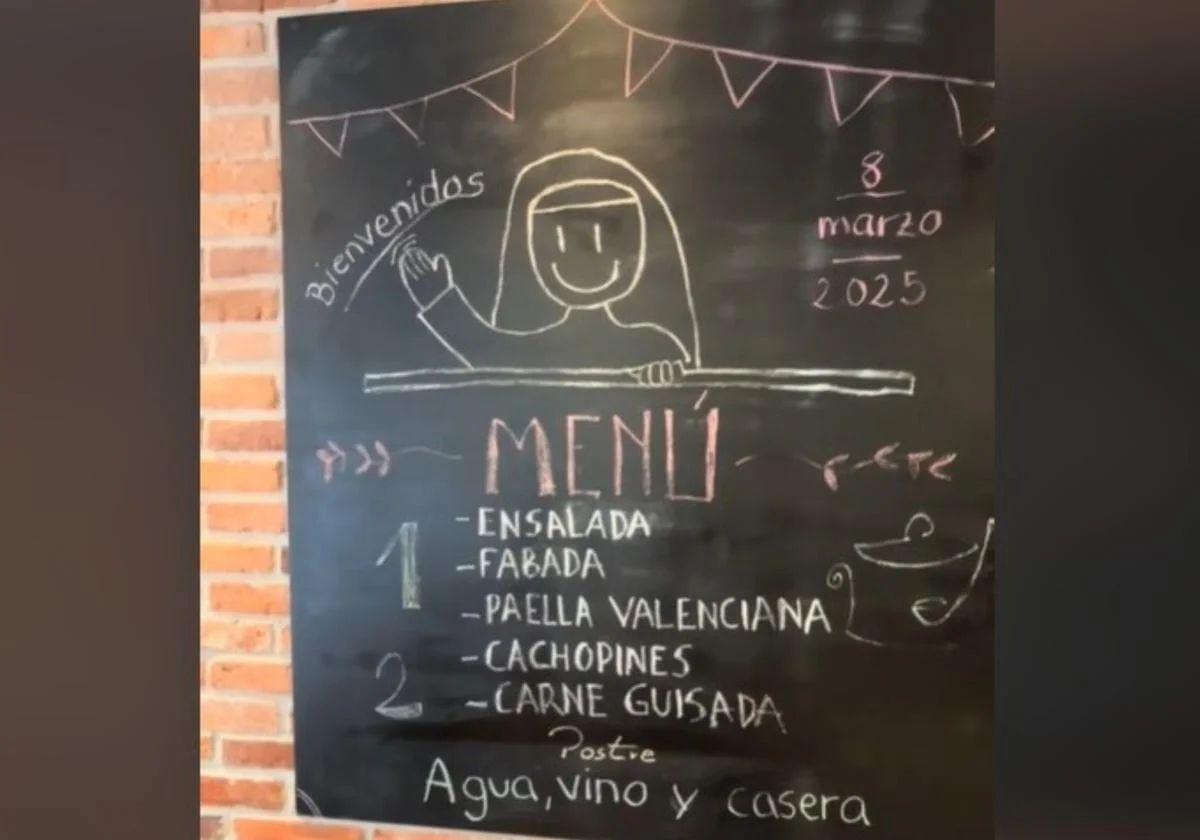 Bienvenidos
8
marzo
2025
MENÚ
1
-ENSALADA
-FABADA
-PAELLA VALENCIANA
2
-CACHOPINES
-CARNE GUISADA
Postre
Agua, vino y casera